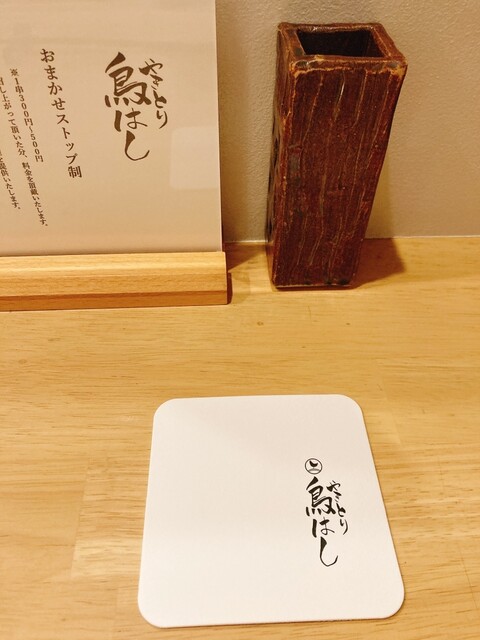 やきとり
鳥はし
おまかせストップ制
※1串300円~500円
召し上がって頂いた分、料金を頂戴いたします。
提供いたします。
やきとり
鳥はし